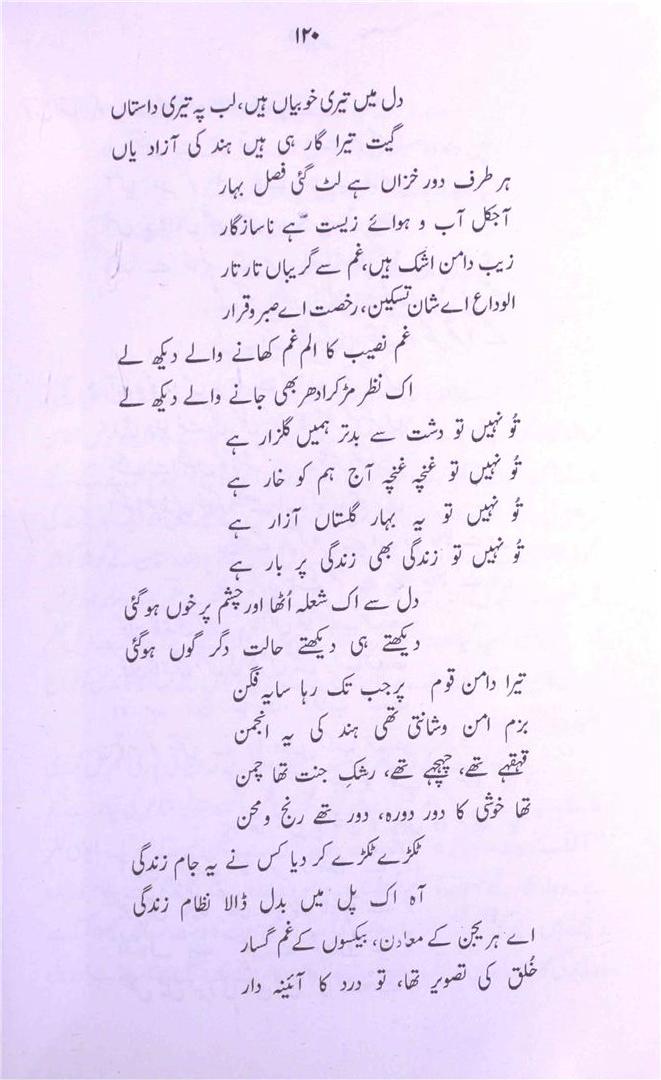 ۱۲۰
دل میں تیری خوبیاں ہیں، لب پہ تیری داستاں
گیت تیرا گا رہی ہیں ہند کی آزاد یاں
ہر طرف دور خزاں ہے لٹ گئی فصل بہار
آجکل آب و ہوائے زیست ہے ناسازگار
زیب دامن اشک ہیں، غم سے گریباں تار تار
الوداع اے شان تسکین، رخصت اے صبر و قرار
غم نصیب کا الم غم کھانے والے دیکھ لے
اک نظر مڑ کر ادھر بھی جانے والے دیکھ لے
تُو نہیں تو دشت سے بدتر ہمیں گلزار ہے
تُو نہیں تو غنچہ غنچہ آج ہم کو خار ہے
تُو نہیں تو یہ بہار گلستاں آزار ہے
تُو نہیں تو زندگی بھی زندگی پر بار ہے
دل سے اک شعلہ اُٹھا اور چشم پر خوں ہوگئی
دیکھتے ہی دیکھتے حالت دگر گوں ہوگئی
تیرا دامن قوم پر جب تک رہا سایہ فگن
بزم امن و شانتی تھی ہند کی یہ انجمن
قہقہے تھے، چہچہے تھے، رشکِ جنت تھا چمن
تھا خوشی کا دور دورہ، دور تھے رنج و محن
ٹکڑے ٹکڑے کر دیا کس نے یہ جام زندگی
آہ اک پل میں بدل ڈالا نظام زندگی
اے ہریجن کے معاون، بیکسوں کے غم گسار
خُلق کی تصویر تھا، تو درد کا آئینہ دار